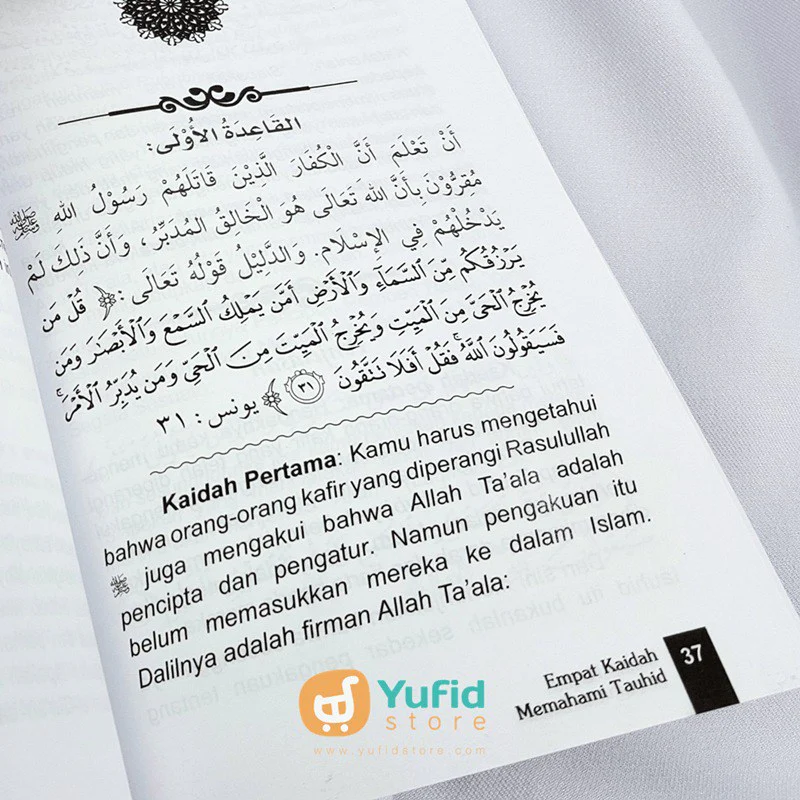 القَاعِدَةُ الأُوْلَى:
أَنْ تَعْلَمَ أَنَّ الْكُفَارَ الَّذِيْنَ قَاتَلَهُمْ رَسُوْلُ اللهِ ﷺ
مُقِرُّوْنَ بِأَنَّ اللهَ تَعَالَى هُوَ الْخَالِقُ المُدَبِّرُ، وَأَنَّ ذَلِكَ لَمْ
يَدْخُلْهُمْ فِي الإِسْلَامِ. وَالدَّلِيْلُ قَوْلُهُ تَعَالَى: ﴿ قُلْ مَن
يَرْزُقُكُم مِّنَ ٱلسَّمَآءِ وَٱلْأَرْضِ أَمَّن يَمْلِكُ ٱلسَّمْعَ وَٱلْأَبْصَٰرَ وَمَن
يُخْرِجُ ٱلْحَىَّ مِنَ ٱلْمَيِّتِ وَيُخْرِجُ ٱلْمَيِّتَ مِنَ ٱلْحَيِّ وَمَن يُدَبِّرُ ٱلْأَمْرَ ۚ
فَسَيَقُولُونَ ٱللَّهُ ۚ فَقُلْ أَفَلَا تَتَّقُونَ ٣١ ﴾ يونس: ٣١
Kaidah Pertama: Kamu harus mengetahui
bahwa orang-orang kafir yang diperangi Rasulullah
ﷺ juga mengakui bahwa Allah Ta'ala adalah
pencipta dan pengatur. Namun pengakuan itu
belum memasukkan mereka ke dalam Islam.
Dalilnya adalah firman Allah Ta'ala:
Empat Kaidah
Memahami Tauhid
37
Yufid
store
www.yufidstore.com